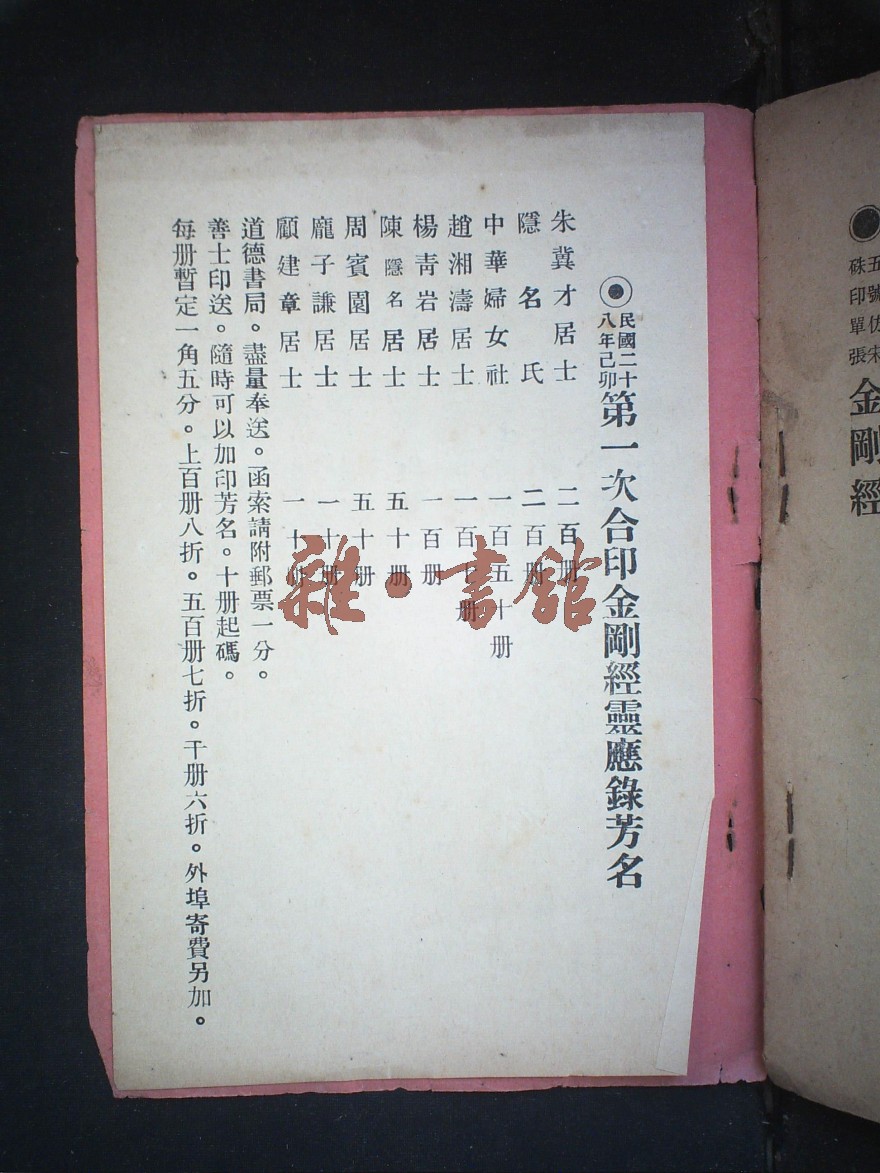 五號仿宋
硃印單張
金剛經
民國二十
八年己卯
第一次合印金剛經靈應錄芳名
朱冀才居士 二百册
隱名氏 二百册
中華婦女社 一百五十册
趙湘濤居士 一百册
楊青岩居士 一百册
陳隱名居士 五十册
周賓園居士 五十册
龐子謙居士 一十册
顧建章居士 一十
道德書局。盡量奉送。函索請附郵票一分。
善士印送。隨時可以加印芳名。十册起碼。
每册暫定一角五分。上百册八折。五百册七折。千册六折。外埠寄費另加。
雜·書館